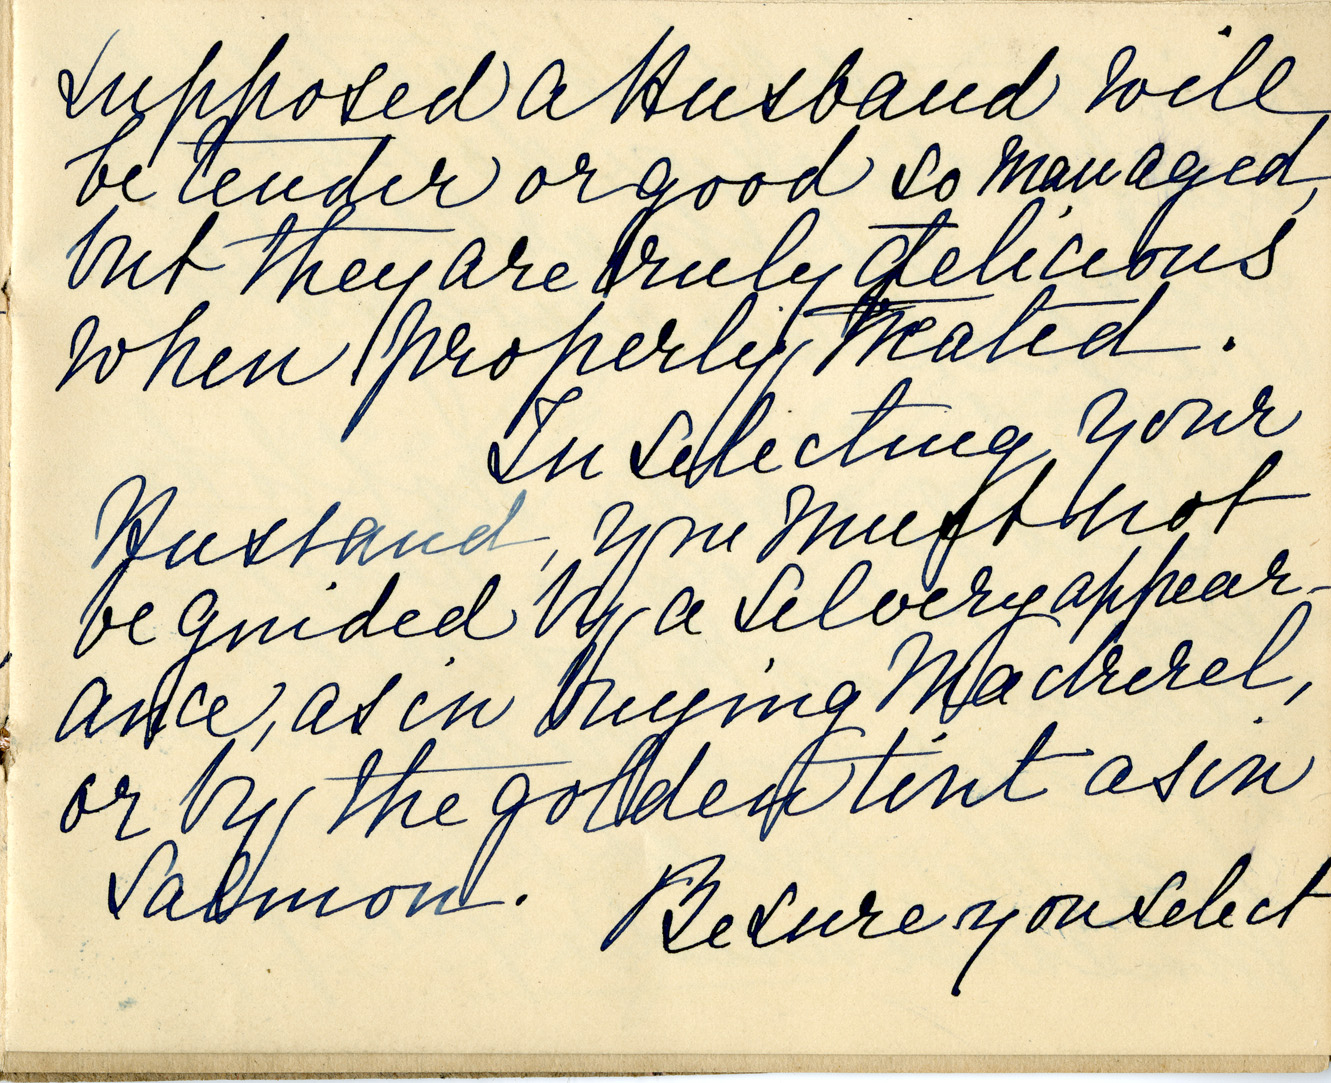 supposed a Husband will
be tender or good so managed,
but they are truly delicious
when properly treated.
In selecting your
Husband, you must not
be guided by a silvery appear-
ance, as in buying Mackerel,
or by the golden tint as in
Salmon. Be sure you select